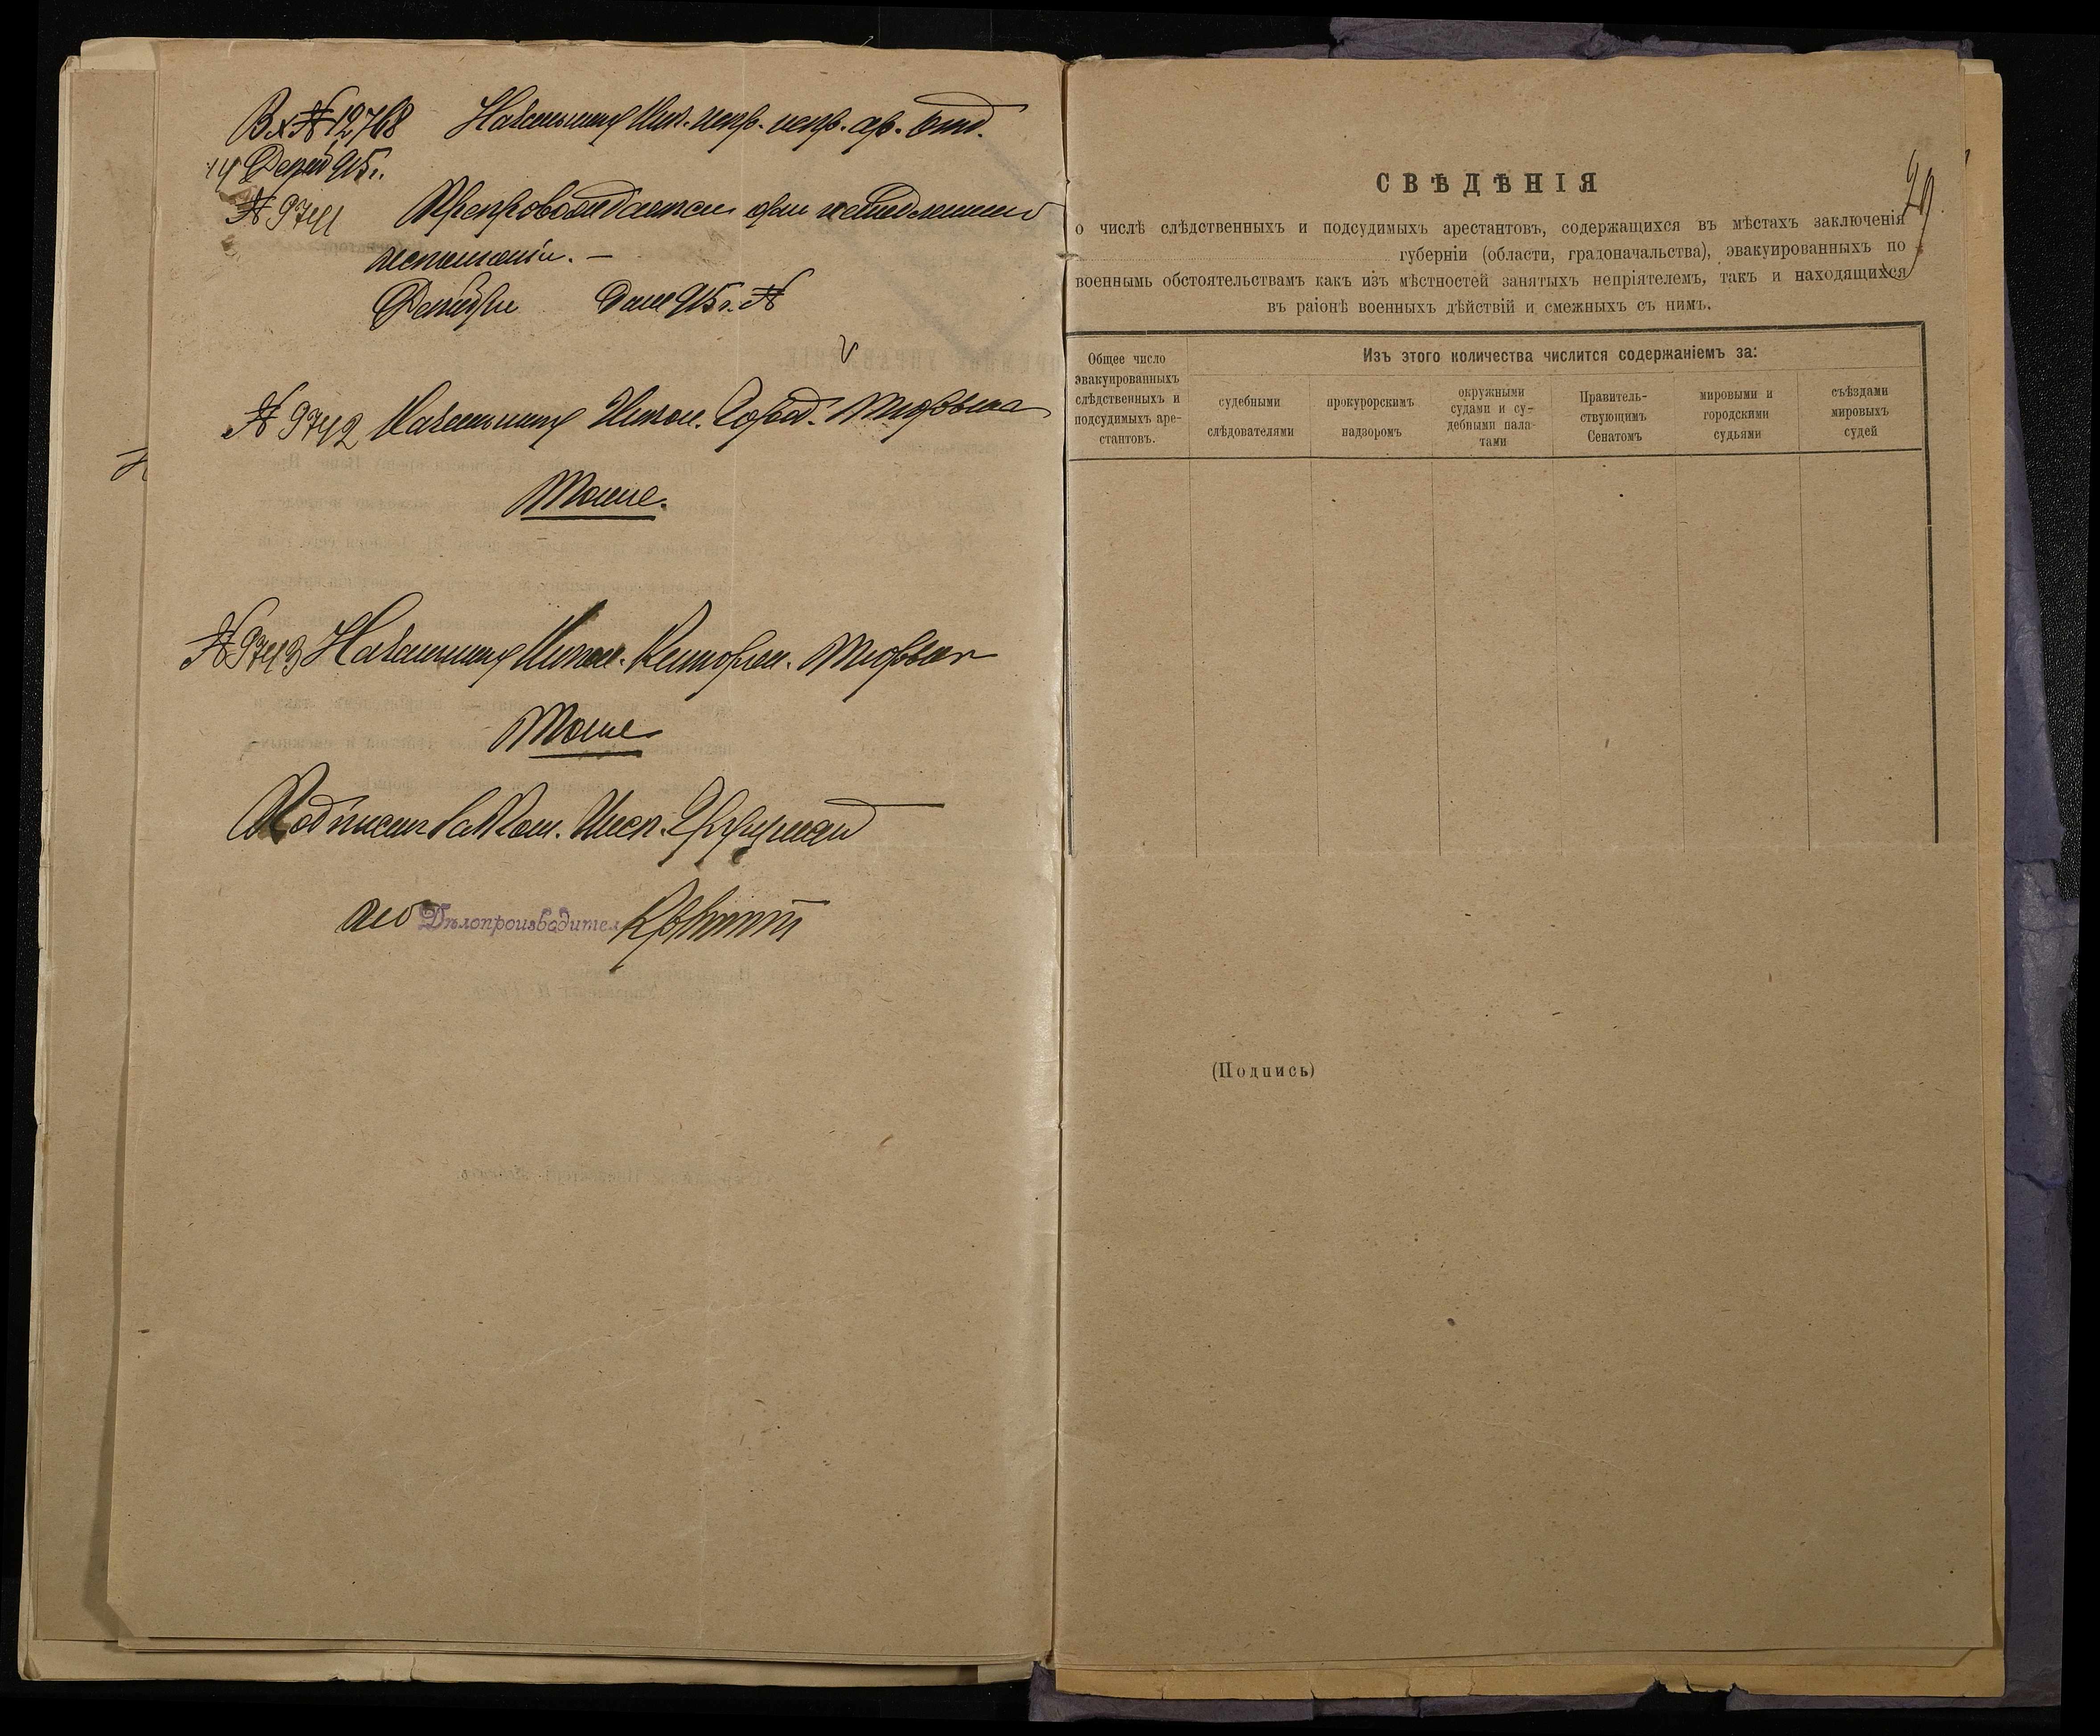 Вх № 12768 Начальнику Ник. испр. ар. Отд.
14 Декаб 915 г.
№ 9741 Препровождается для немедленнаго
исполненія. —
Декабря дня 915 г. №
№ 9742 Начальнику Никол. Город. Тюрьмы
Тоже.
№ 9743 Начальнику Никол. Каторжн. Тюрьмы
Тоже
Подписал Пом. Инсп.
Дѣлопроизводител
29
СВѢДѢНІЯ
о числѣ слѣдственныхъ и подсудимыхъ арестантовъ, содержащихся въ мѣстахъ заключенія
губерніи (области, градоначальства), эвакуированныхъ по
военнымъ обстоятельствамъ какъ изъ мѣстностей занятыхъ непріятелемъ, такъ и находящихся
въ раіонѣ военныхъ дѣйствій и смежныхъ съ нимъ.
Общее число
эвакуированныхъ
слѣдственныхъ и
подсудимыхъ аре-
стантовъ.
Изъ этого количества числится содержаніемъ за:
судебными
слѣдователями
прокурорскимъ
надзоромъ
окружными
судами и су-
дебными пала-
тами
Правитель-
ствующимъ
Сенатомъ
мировыми и
городскими
судьями
съѣздами
мировыхъ
судей
(Подпись)